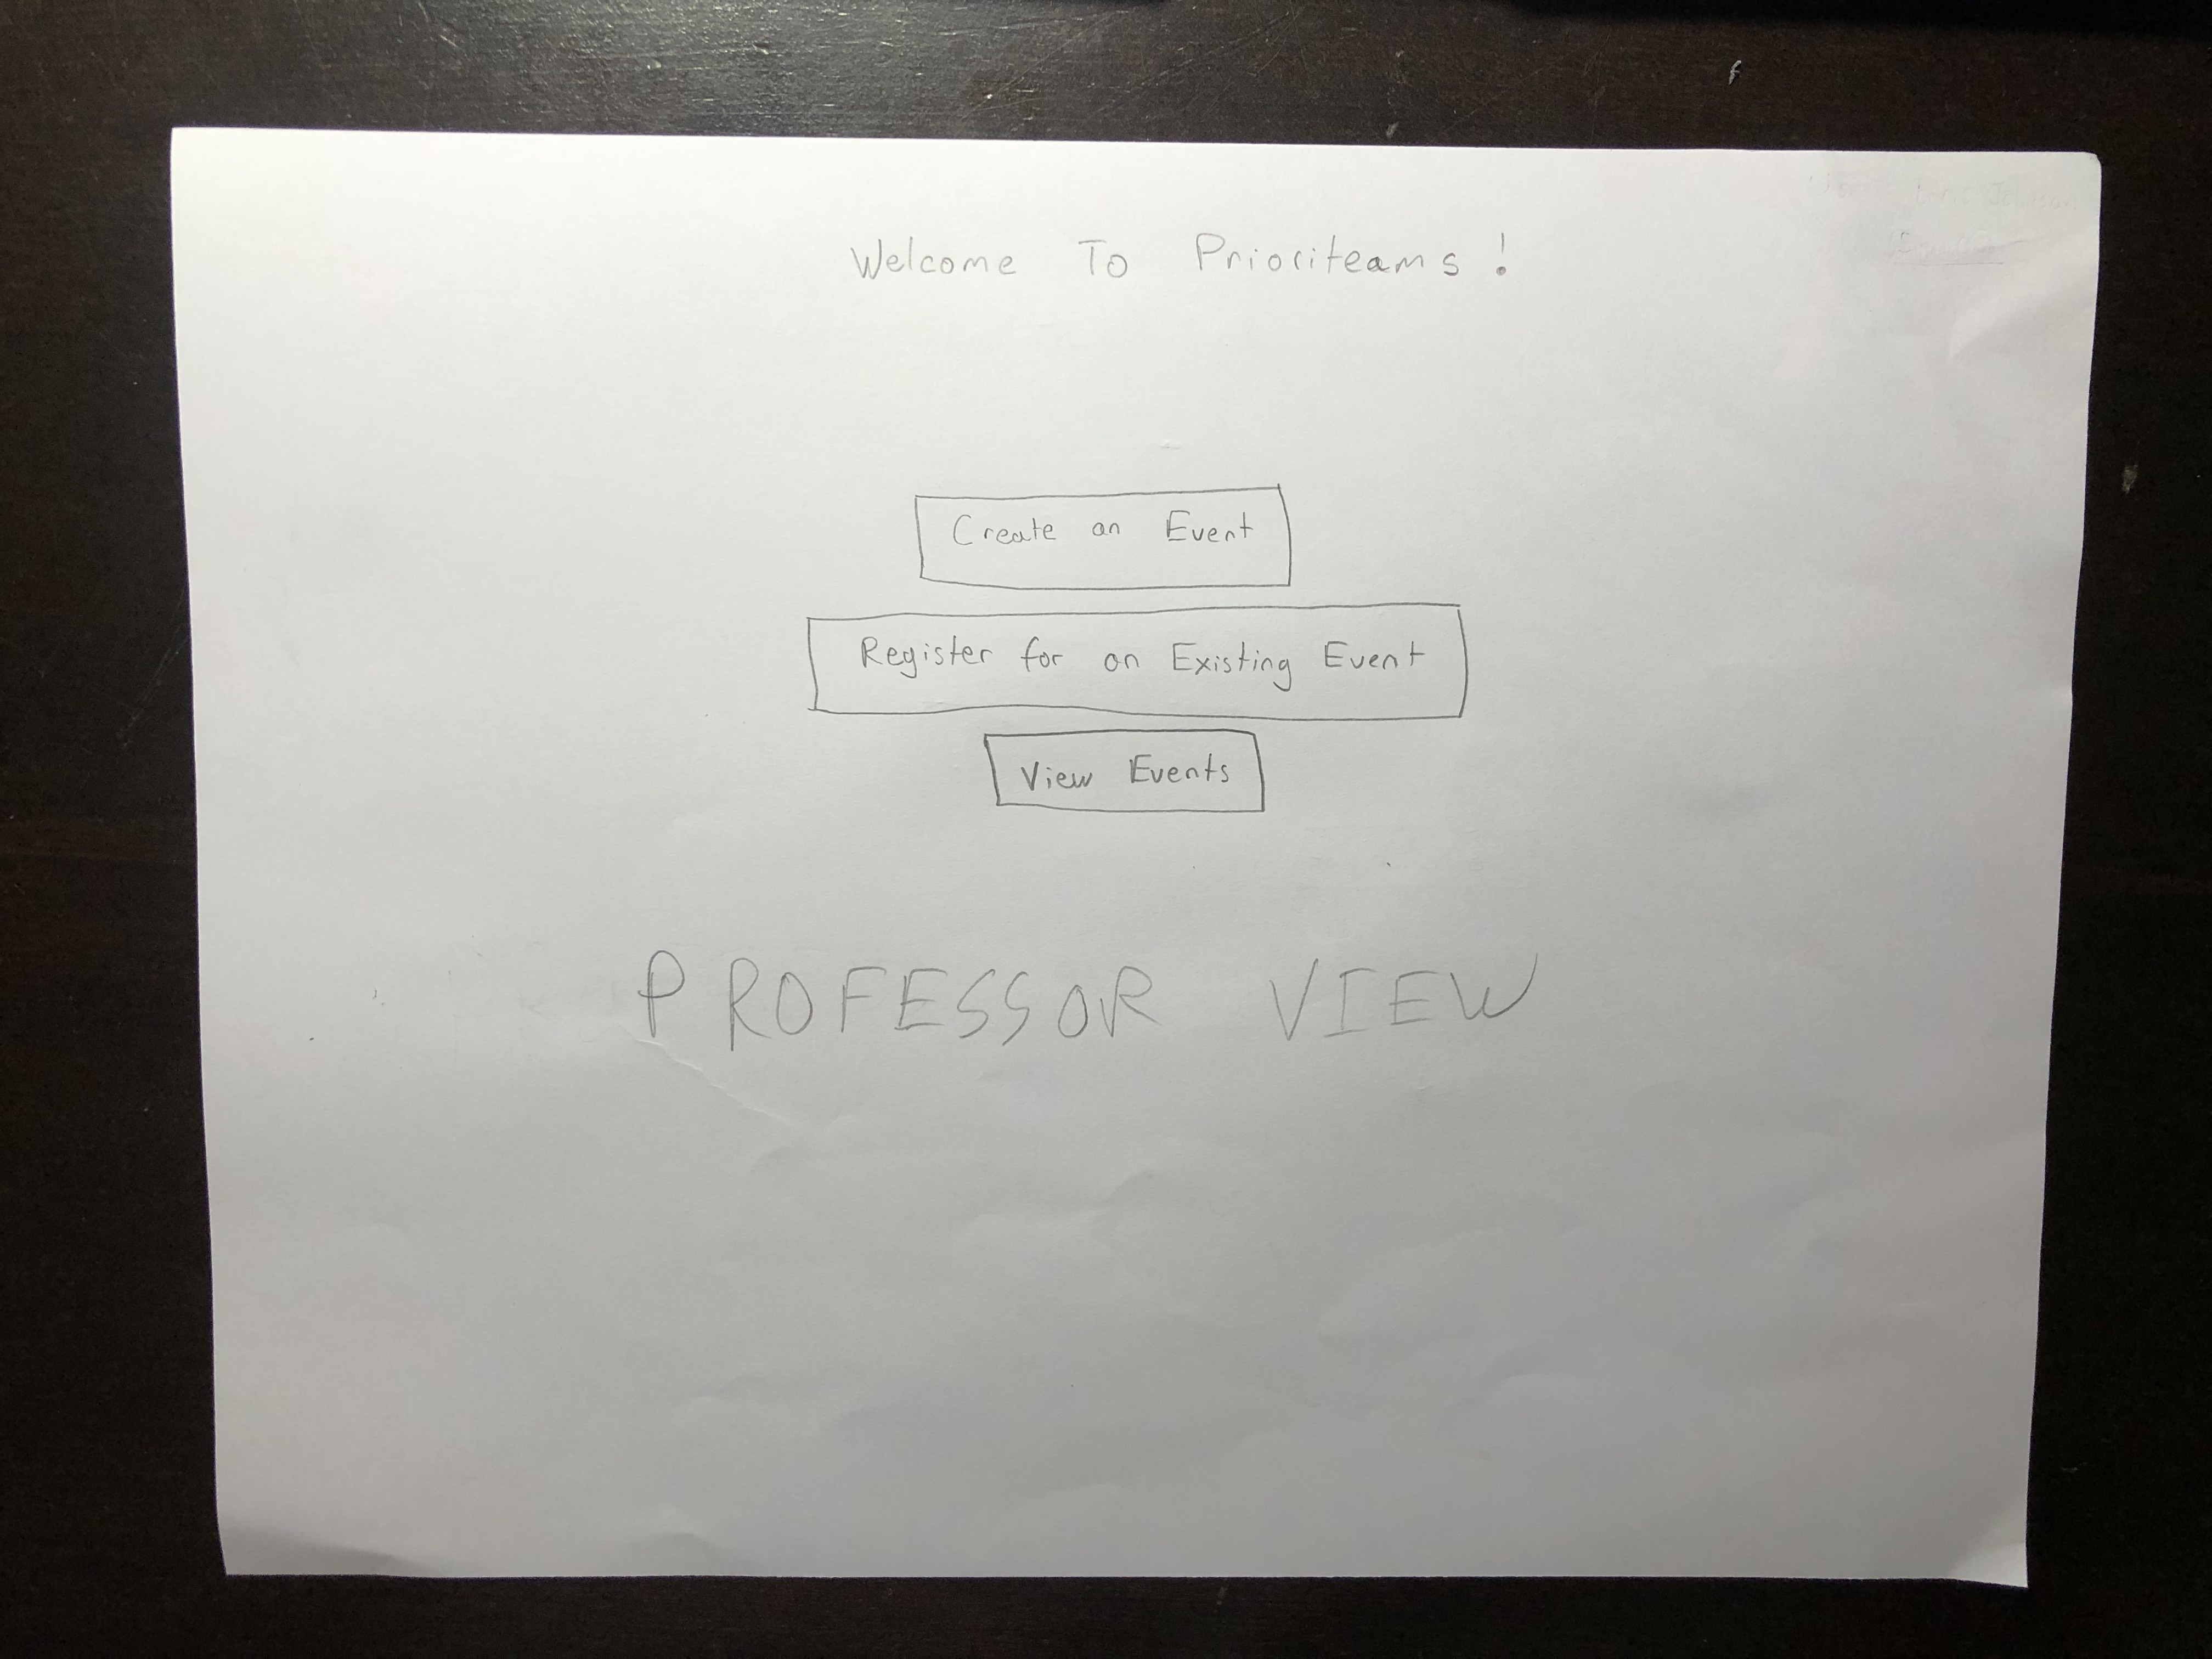 Welcome To Prioriteams!
Create an Event
Register for an Existing Event
View Events
PROFESSOR VIEW